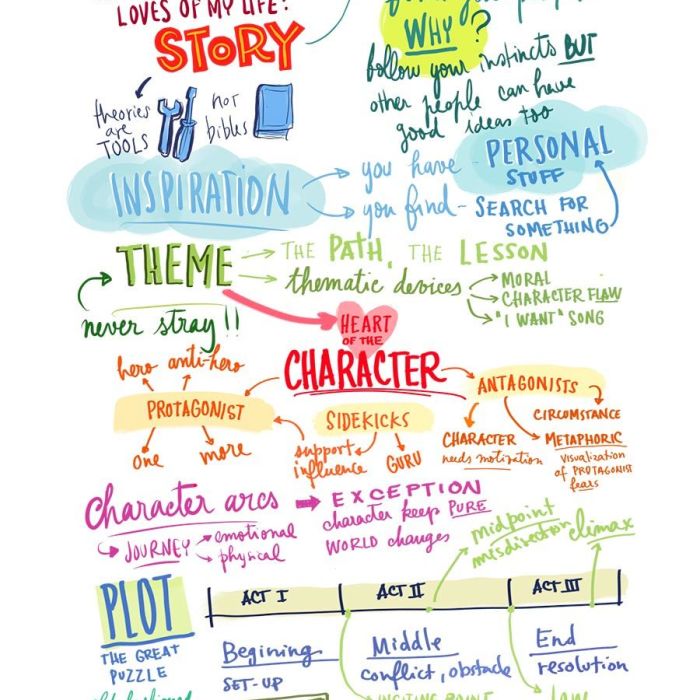 LOVES OF MY LIFE!
STORY
WHY?
follow your instincts BUT
other people can have
good ideas too
theories
are
TOOLS
not
bibles
INSPIRATION
you have
PERSONAL
STUFF
you find - SEARCH FOR
SOMETHING
THEME
THE PATH, THE LESSON
thematic devices
MORAL
CHARACTER FLAW
"I WANT" SONG
never stray!!
HEART
OF THE
CHARACTER
hero anti-hero
PROTAGONIST
one more
SIDEKICKS
support
influence
GURU
ANTAGONISTS
CHARACTER
needs motivation
CIRCOMSTANCE
METAPHORIC
VISUALIZATION
OF PROTAGONIST
fears
Character arcs
JOURNEY
emotional
physical
EXCEPTION
character keep PURE
WORLD changes
midpoint
misdirection
climax
PLOT
THE GREAT
PUZZLE
ACT I
ACT II
ACT III
Begining
SET-UP
Middle
conflict, obstacle
End
resolution